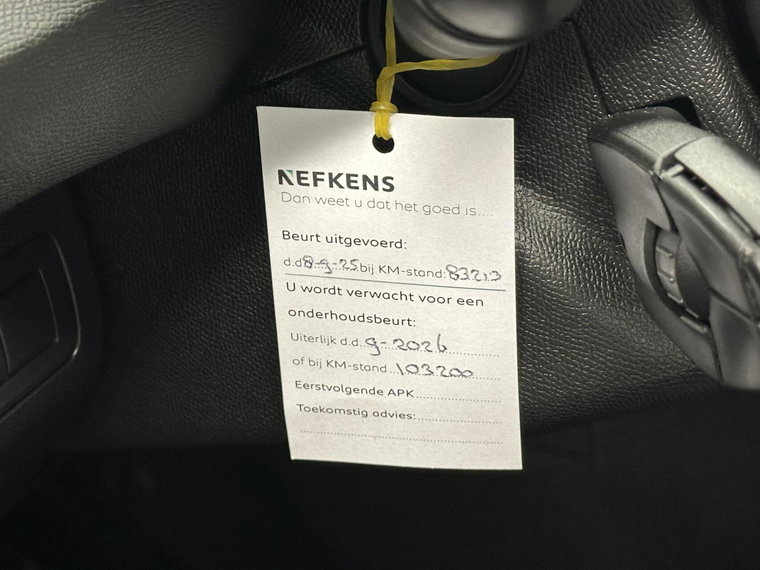 NEFKENS
Dan weet u dat het goed is....
Beurt uitgevoerd:
d.d. 8-9-25 bij KM-stand: 83213
U wordt verwacht voor een
onderhoudsbeurt:
Uiterlijk d.d. 9-2026
of bij KM-stand 103200
Eerstvolgende APK
Toekomstig advies: